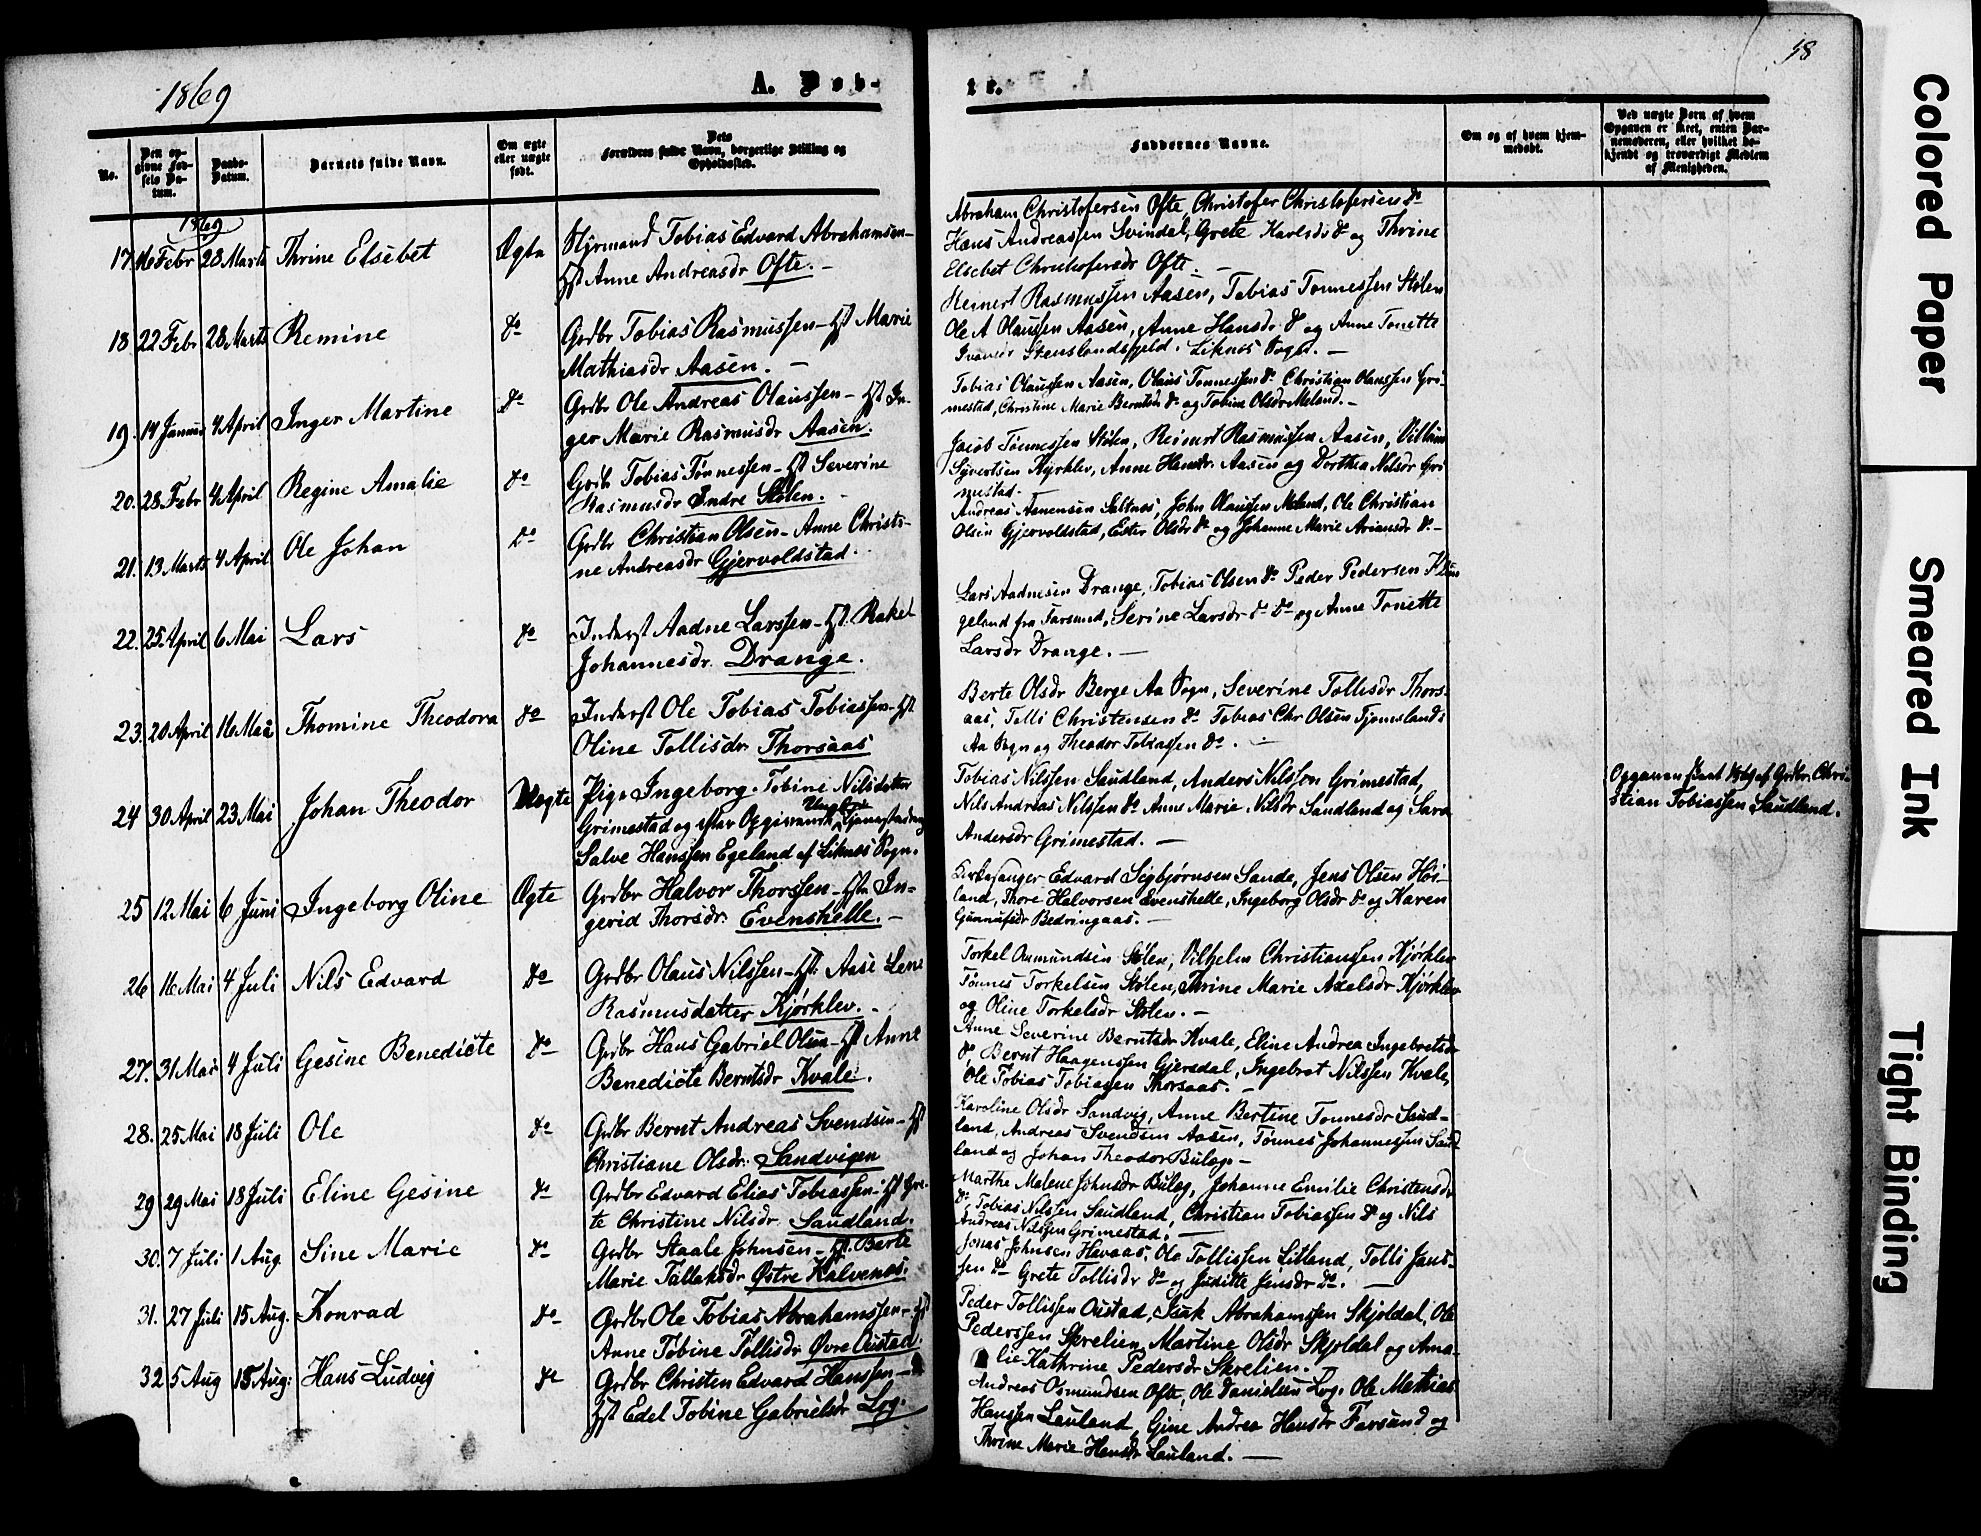 1869
A. Døb-
No.
Den op-
givne Fød-
sels Da-
tum.
Daabs-
Datum.
Barnets fulde Navn.
Om ægte
eller uægte
født.
Dets
Forældres fulde Navn, borgerlige Stilling og
Opholdssted.
1869
17. 16 Febr 28 Marts Thrine Elsebet Ægte Styrmand Tobias Edvard Abrahamsen-
Hst Anne Andreasdr Ofte. -
18 22 Febr 28 Marts Remine do Grdbr Tobias Rasmussen - Hst Marie
Mathiasdr Aasen. -
19. 14 Januar 4 April Inger Martine do Grdbr Ole Andreas Olaussen - Hst In-
ger Marie Rasmusdr Aasen.
20. 28 Febr 4 April Regine Amalie do Grdbr Tobias Tønnessen - Hst Severine
Rasmusdr Indre Stølen. -
21. 13 Marts 4 April Ole Johan Do Grdbr Christian Olsen - Anne Christi-
ne Andreasdr Gjervoldstad.
22. 25 April 6 Mai Lars do Inderst Aadne Larssen - Hst. Rakel
Johannesdr. Drange.
23. 20 April 16 Mai Thomine Theodora do Inderst Ole Tobias Tobiassen - Hst
Oline Tollisdr. Thorsaas
24 30 April 23 Mai Johan Theodor Uægte Pige Ingeborg Tobine Nilsdatter
Grimestad og efter Opgivende Ungkar
Salve Hanssen Egeland af Liknes Sogn.
25 12 Mai 6 Juni Ingeborg Oline Ægte Grdbr Halvor Thorssen - Hst In-
gerid Thorsdr. Evenshelle. -
26 16 Mai 4 Juli Nils Edvard do Grdbr Olaus Nilssen - Hst. Aase Lene
Rasmusdatter Kjørklev. -
27. 31 Mai 4 Juli Gesine Benedicte do Grdbr Hans Gabriel Olsen - Hst Anne
Benedicte Berntsdr Kvale.
28. 25 Mai 18 Juli Ole do Grdbr Bernt Andreas Svendsen - Hst
Christiane Olsdr. Sandvigen
29 29 Mai 18 Juli Eline Gesine do Grdbr Edvard Elias Tobiassen - Hst Gre-
te Christine Nilsdr. Saudland.
30. 7 Juli 1 Aug Sine Marie do Grdbr Staale Johnsen - Hst. Berte
Marie Tallaksdr Østre Kalvenes.
31. 27 Juli 15 Aug. Konrad do Grdbr Ole Tobias Abrahamssen - Hst
Anne Tobine Tollisdr Øvre Oustad.
32 5 Aug 15 Aug: Hans Ludvig do Grdbr Christen Edvard Hanssen -
Hst Edel Tobine Gabrielsdr Log.
te.
58
Faddernes Navne.
Om og af hvem hjem-
medøbt.
Ved uægte Børn af hvem
Opgaven er skeet, enten Bar-
nemoderen, eller hvilket be-
kjendt og troværdigt Medlem
af Menigheden.
Abraham Christofersen Ofte, Christofer Christofersen do
Hans Andreassen Svindal, Grete Karlsdr do og Thrine
Elsebet Christofersdr Ofte. -
Reinert Rasmussen Aasen, Tobias Tønnessen Stølen
Ole A Olaussen Aasen, Anne Hansdr do og Anne Tonette
Stenslandsfjeld. Liknes Sogn. -
Tobias Olaussen Aasen, Olaus Tønnessen do Christian Olaussen Gri-
mestad, Christine Marie Berntsdr do og Tobine Olsdr Meland. -
Jacob Tønnessen Stølen, Reinert Rasmussen Aasen, Villum
Sivertsen Kjørklev, Anne Hansdr. Aasen og Dorthea Nilsdr Gri
mestad.
Andreas Aanensen Saltnes, John Olaussen Meland, Ole Christian
Olsen Gjervoldstad, Ester Olsdr do og Johanne Marie Ariansdr do -
Lars Aadnesen Drange, Tobias Olsen do Peder Pedersen
geland fra Farsund, Serine Larsdr do do og Anne Tonette
Larsdr Drange. -
Berte Olsdr Berge Aa Sogn, Severine Tollisdr Thors-
aas, Tolli Christensen do Tobias Chr Olsen Tjomslands
Aa Sogn og Theodor Tobiassen do. -
Tobias Nilssen Saudland, Anders Nilsson Grimestad,
Nils Andreas Nilssen do Anne Marie Nilsdr Saudland og Sara
Andersdr Grimestad. -
Opgaven skeet af Grdbr. Chri-
stian Tobiassen Saudland.
Kirkesanger Edvard Sigbjørnsen Sande, Jens Olsen Høi-
land, Thore Halvorsen Evenshelle, Ingeborg Olsdr do og Karen
Gunnufsdr Bedringaas. -
Torkel Omundsen Stølen, Vilhelm Christianssen Kjørklev
Tønnes Torkelsen Stølen, Thrine Marie Axelsdr Kjørklev
og Oline Torkelsdr Stølen. -
Anne Severine Berntsdr Kvale, Eline Andrea Ingebretsdr
do Bernt Haagenssen Gjersdal, Ingebret Nilssen Kvale,
Ole Tobias Tobiassen Thorsaas. -
Karoline Olsdr Sandvig, Anne Bertine Tonnesdr Saud-
land, Andreas Svendsen Aasen, Tønnes Johannessen Saud
land og Johan Theodor Buleg. -
Marthe Malene Johnsdr Buleg, Johanne Emilie Christensdr
do, Tobias Nilssen Saudland, Christian Tobiassen do og Nils
Andreas Nilssen Grimestad. -
Jonas Johnsen Havaas, Ole Tollissen Litland, Tolli Jans-
sen do Grete Tollisdr do og Juditte Jensdr do. -
Peder Tollissen Oustad, Isak Abrahamssen Skjoldal, Ole
Pederssen Skrelien, Martine Olsdr Skjoldal og Ama-
lie Kathrine Pedersdr Skrelien. -
Andreas Osmundsen Ofte, Ole Danielsen Log, Ole Mathias
Hanssen Lauland, Gine Andrea Hansdr Farsund og
Thrine Marie Hansdr Lauland. -
Colored Paper
Smeared Ink
Tight Binding